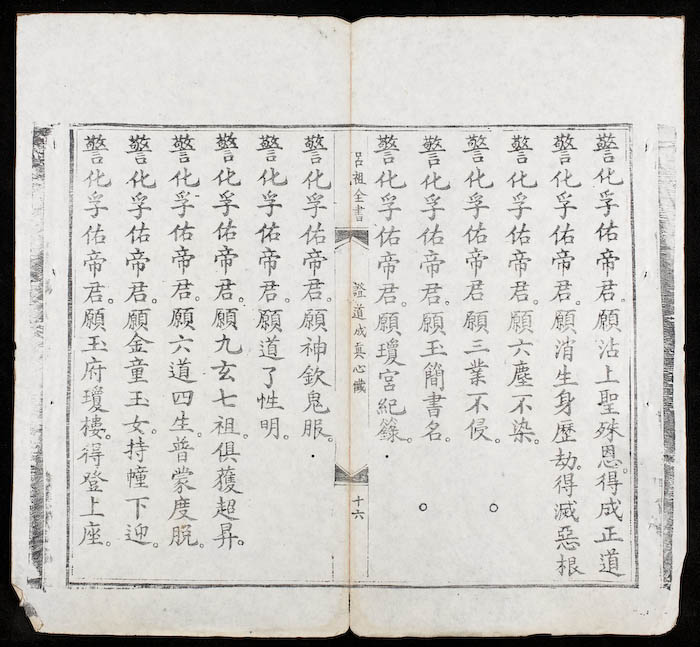 警化孚佑帝君。願沾上聖殊恩。得成正道
警化孚佑帝君。願消生身歷劫。得滅惡根
警化孚佑帝君。願六塵不染。
警化孚佑帝君。願三業不侵。
警化孚佑帝君。願玉簡書名。
警化孚佑帝君。願瓊宮紀籙。
呂祖全書
證道成真心懺
十六
警化孚佑帝君。願神欽鬼服。
警化孚佑帝君。願道了性明。
警化孚佑帝君。願九玄七祖。俱獲超昇。
警化孚佑帝君。願六道四生。普蒙度脫。
警化孚佑帝君。願金童玉女。持幢下迎。
警化孚佑帝君。願玉府瓊樓。得登上座。